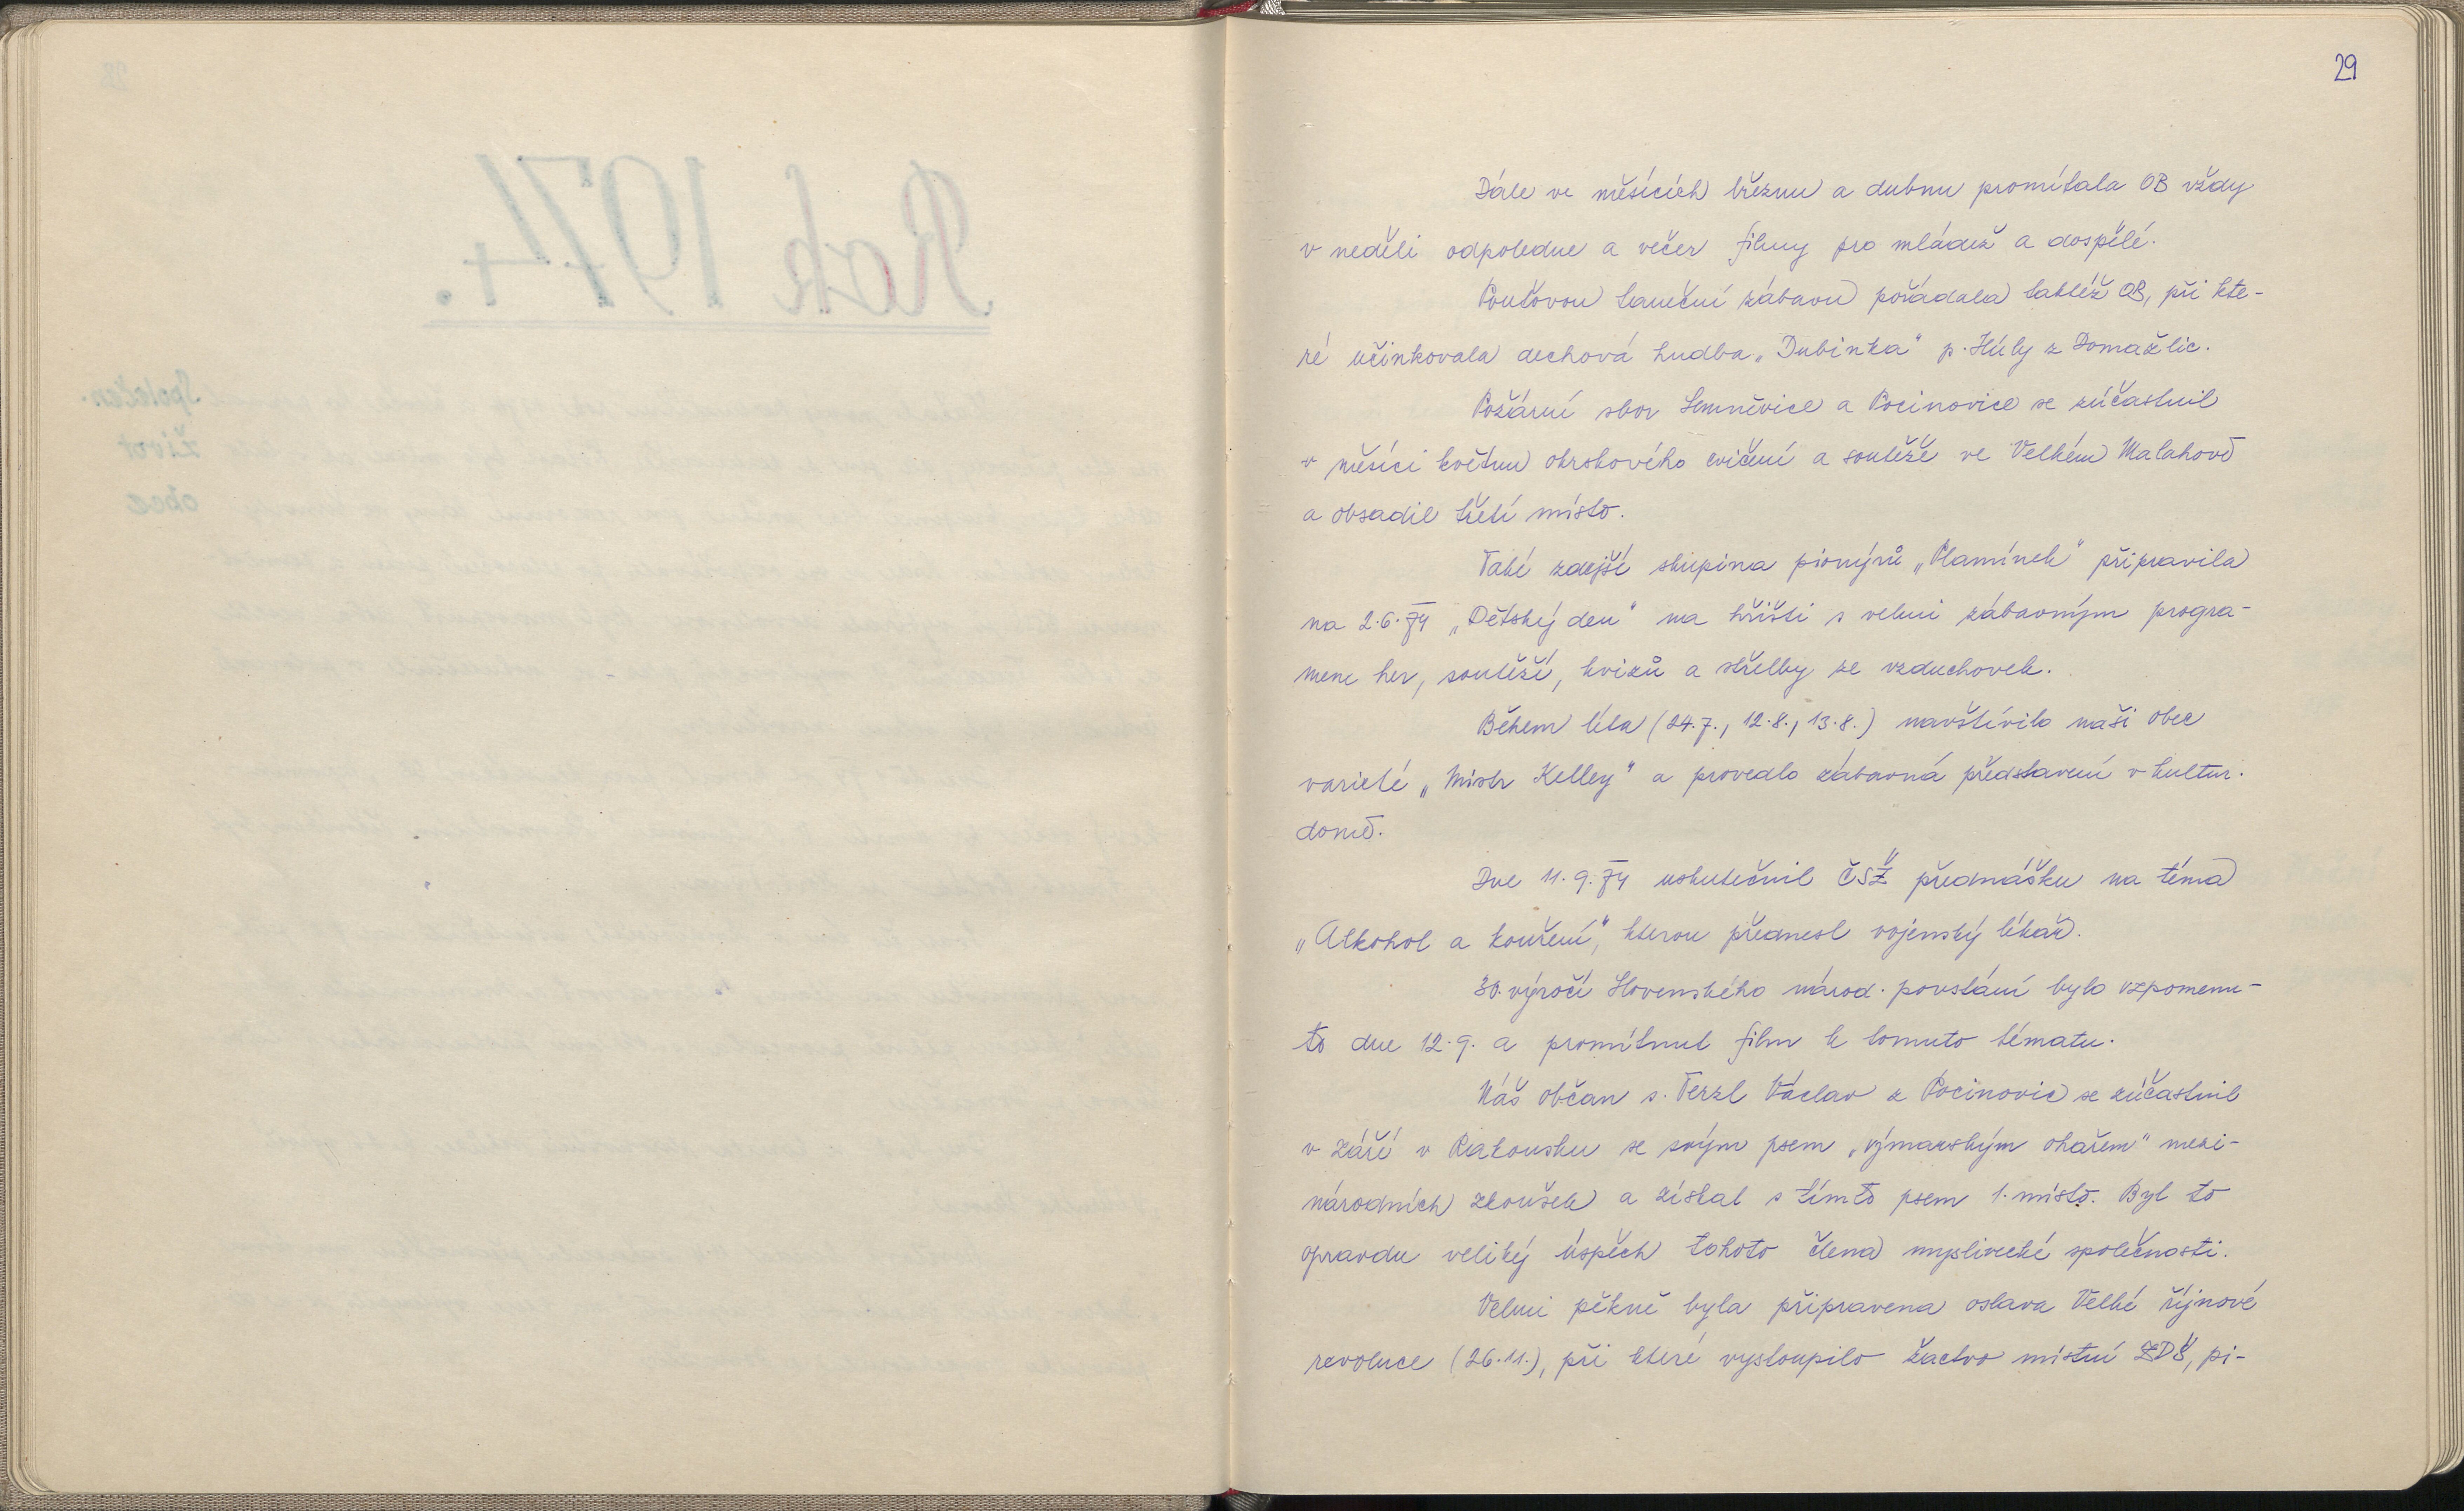 29
Dále ve měsících březnu a dubnu promítala OB vždy
v neděli odpoledne a večer filmy pro mládež a dospělé.
Pouťovou taneční zábavu pořádala taktéž OB, při kte-
ré učinkovala dechová hudba „Dubinka" p. Húly z Domažlic.
Požární sbor Semněvice a Pocinovice se zúčastnil
v měsíci květnu okrskového cvičení a soutěže ve Velkém Malahově
a obsadil třetí místo.
Také zdejší skupina pionýrů „Plamínek" připravila
na 2.6.74 „Dětský den" na hřišti s velmi zábavným progra-
mem her, soutěží, kvizů a střelby ze vzduchovek.
Během léta (24.7., 12.8., 13.8.) navštívilo naši obec
varieté „Mistr Kelley" a provedlo zábavná představení v kultur.
domě.
Dne 11.9.74 uskutečnil ČSŽ přednášku na téma
„Alkohol a kouření", kterou přednesl vojenský lékař.
30. výročí Slovenského národ. povstání bylo vzpomenu-
to dne 12.9. a promítnut film k tomuto tématu.
Náš občan s. Terzl Václav z Pocinovic se zúčastnil
v září v Rakousku se svým psem „výmarským ohařem" mezi-
národních zkoušek a získal s tímto psem 1. místo. Byl to
opravdu veliký úspěch tohoto člena myslivecké společnosti.
Velmi pěkně byla připravena oslava Velké říjnové
revoluce (26.11.), při které vystoupilo žactvo místní ZDŠ, pi-